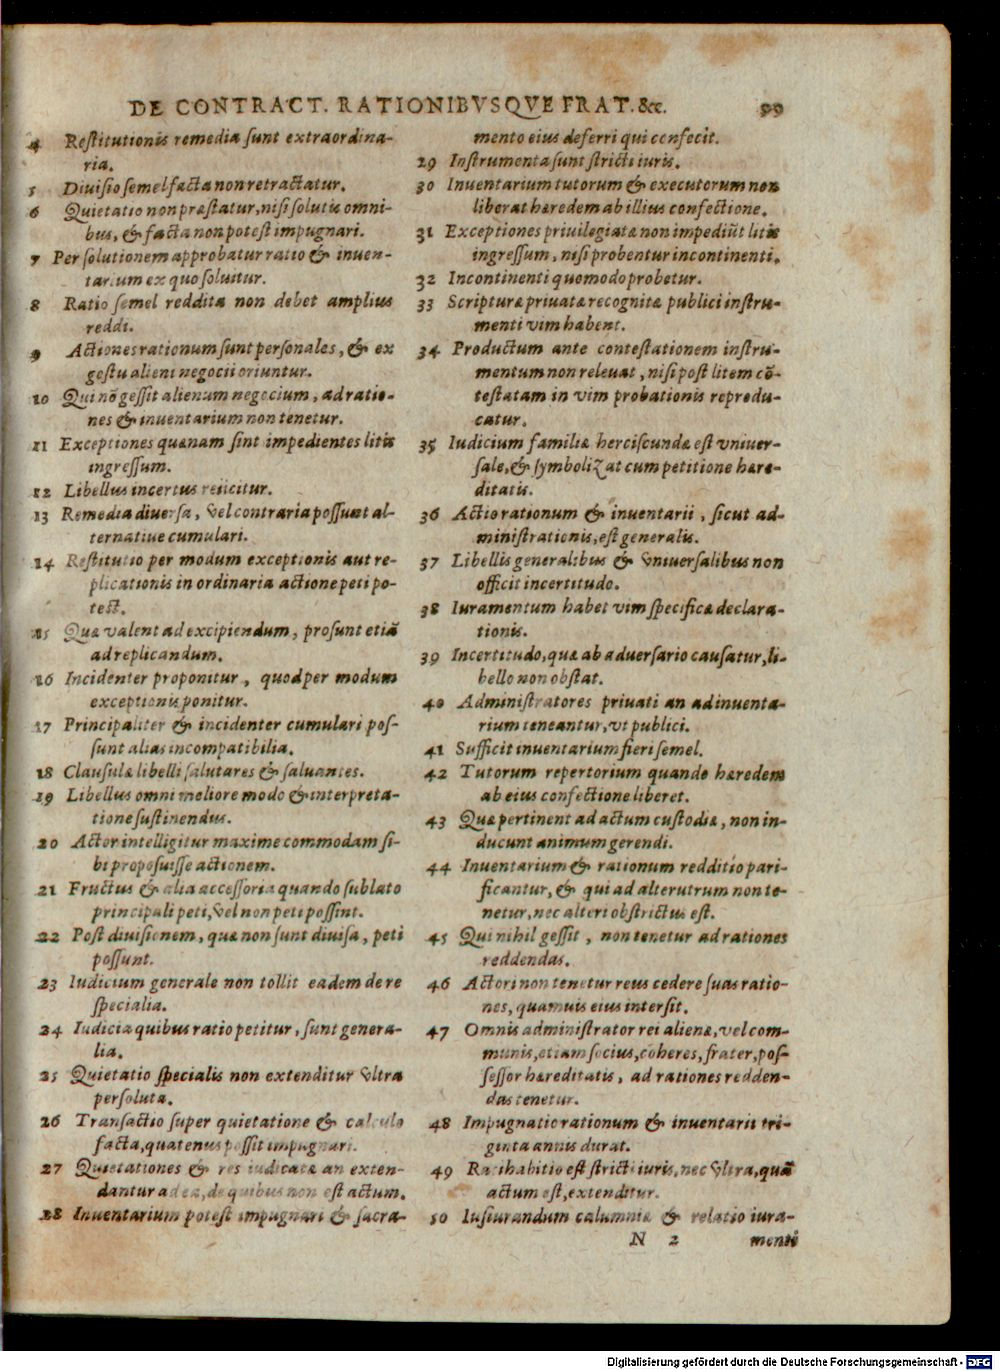 DE CONTRACT. RATIONIBVSQVE FRAT. &c. 99
4 Restitutionis remedia sunt extraordina-
ria.
5 Diuisio semel facta non retractatur.
6 Quietatio non præstatur, nisi solutis omni-
bus, & facta non potest impugnari.
7 Per solutionem approbatur ratio & inuen-
tarium ex quo soluitur.
8 Ratio semel reddita non debet amplius
reddi.
9 Actiones rationum sunt personales, & ex
gestu alieni negocii oriuntur.
10 Qui nõ gessit alienum negocium, ad ratio-
nes & inuentarium non tenetur.
11 Exceptiones quænam sint impedientes litis
ingressum.
12 Libellus incertus reiicitur.
13 Remedia diuersa, vel contraria possunt al-
ternatiue cumulari.
14 Restitutio per modum exceptionis aut re-
plicationis in ordinaria actione peti po-
test.
15 Quæ valent ad excipiendum, prosunt etiã
ad replicandum.
16 Incidenter proponitur, quod per modum
exceptionis ponitur.
17 Principaliter & incidenter cumulari pos-
sunt alias incompatibilia.
18 Clausulæ libelli salutares & saluantes.
19 Libellus omni meliore modo & interpreta-
tione sustinendus.
20 Actor intelligitur maxime commodam si-
bi proposuisse actionem.
21 Fructus & alia accessoria quando sublato
principali peti, vel non peti possint.
22 Post diuisionem, quæ non sunt diuisa, peti
possunt.
23 Iudicium generale non tollit eadem de re
specialia.
24 Iudicia quibus ratio petitur, sunt genera-
lia.
25 Quietatio specialis non extenditur vltra
persoluta.
26 Transactio super quietatione & calculo
facta, quatenus possit impugnari.
27 Quietationes & res iudicatæ an exten-
dantur ad ea, de quibus non est actum.
28 Inuentarium potest impugnari & sacra-
mento eius deferri qui confecit.
29 Instrumenta sunt stricti iuris.
30 Inuentarium tutorum & executorum non
liberat hæredem ab illius confectione.
31 Exceptiones priuilegiatæ non impediũt litis
ingressum, nisi probentur incontinenti.
32 Incontinenti quomodo probetur.
33 Scripturæ priuatæ recognitæ publici instru-
menti vim habent.
34 Productum ante contestationem instru-
mentum non releuat, nisi post litem cõ-
testatam in vim probationis reprodu-
catur.
35 Iudicium familiæ herciscundæ est vniuer-
sale, & symbolizat cum petitione hære-
ditatis.
36 Actio rationum & inuentarii, sicut ad-
ministrationis, est generalis.
37 Libellis generalibus & vniuersalibus non
officit incertitudo.
38 Iuramentum habet vim specificæ declara-
tionis.
39 Incertitudo, quæ ab aduersario causatur, li-
bello non obstat.
40 Administratores priuati an ad inuenta-
rium teneantur, vt publici.
41 Sufficit inuentarium fieri semel.
42 Tutorum repertorium quando hæredem
ab eius confectione liberet.
43 Quæ pertinent ad actum custodiæ, non in-
ducunt animum gerendi.
44 Inuentarium & rationum redditio pari-
ficantur, & qui ad alterutrum non te-
netur, nec alteri obstrictus est.
45 Qui nihil gessit, non tenetur ad rationes
reddendas.
46 Actori non tenetur reus cedere suas ratio-
nes, quamuis eius intersit.
47 Omnis administrator rei alienæ, vel com-
munis, etiam socius, coheres, frater, pos-
sessor hæreditatis, ad rationes redden-
das tenetur.
48 Impugnatio rationum & inuentarii tri-
ginta annis durat.
49 Ratihabitio est stricti iuris, nec vltra, quã
actum est, extenditur.
50 Iusiurandum calumniæ & relatio iura-
N 2 menti
Digitalisierung gefördert durch die Deutsche Forschungsgemeinschaft - DFG